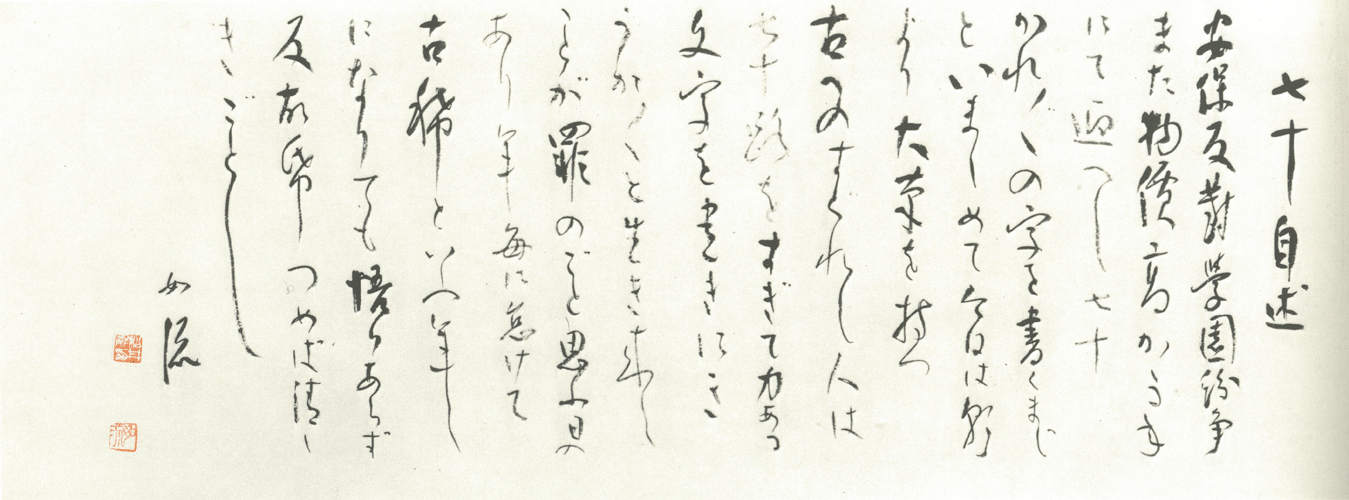 七十自述
安保反對學園紛争
また物價高かる年
にて迎へし七十
かれ〲の字を書くまじ
といましめて今日は朝
より大筆を持つ
古へのすぐれし人は
七十路をすぎて力ある
文字を書きにき
うか〱と生き来し
ことが罪のごと思ふ日の
あり年毎に怠けて
古稀といふ年
になりても悟りあらず
反故帋つめば清し
きごとし
如流